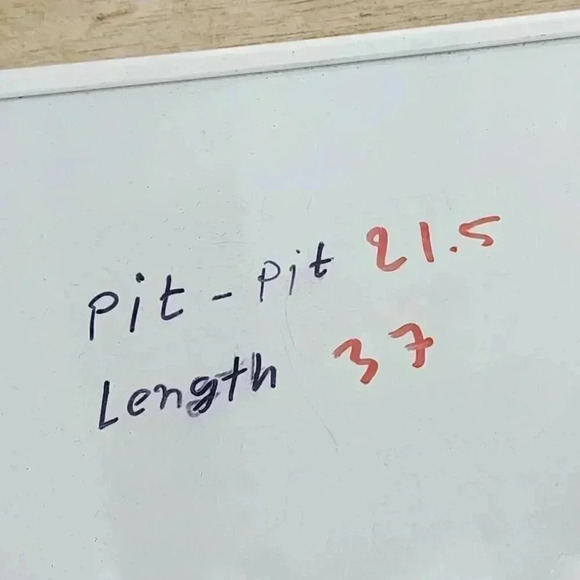 Pit - Pit 21.5
Length 37